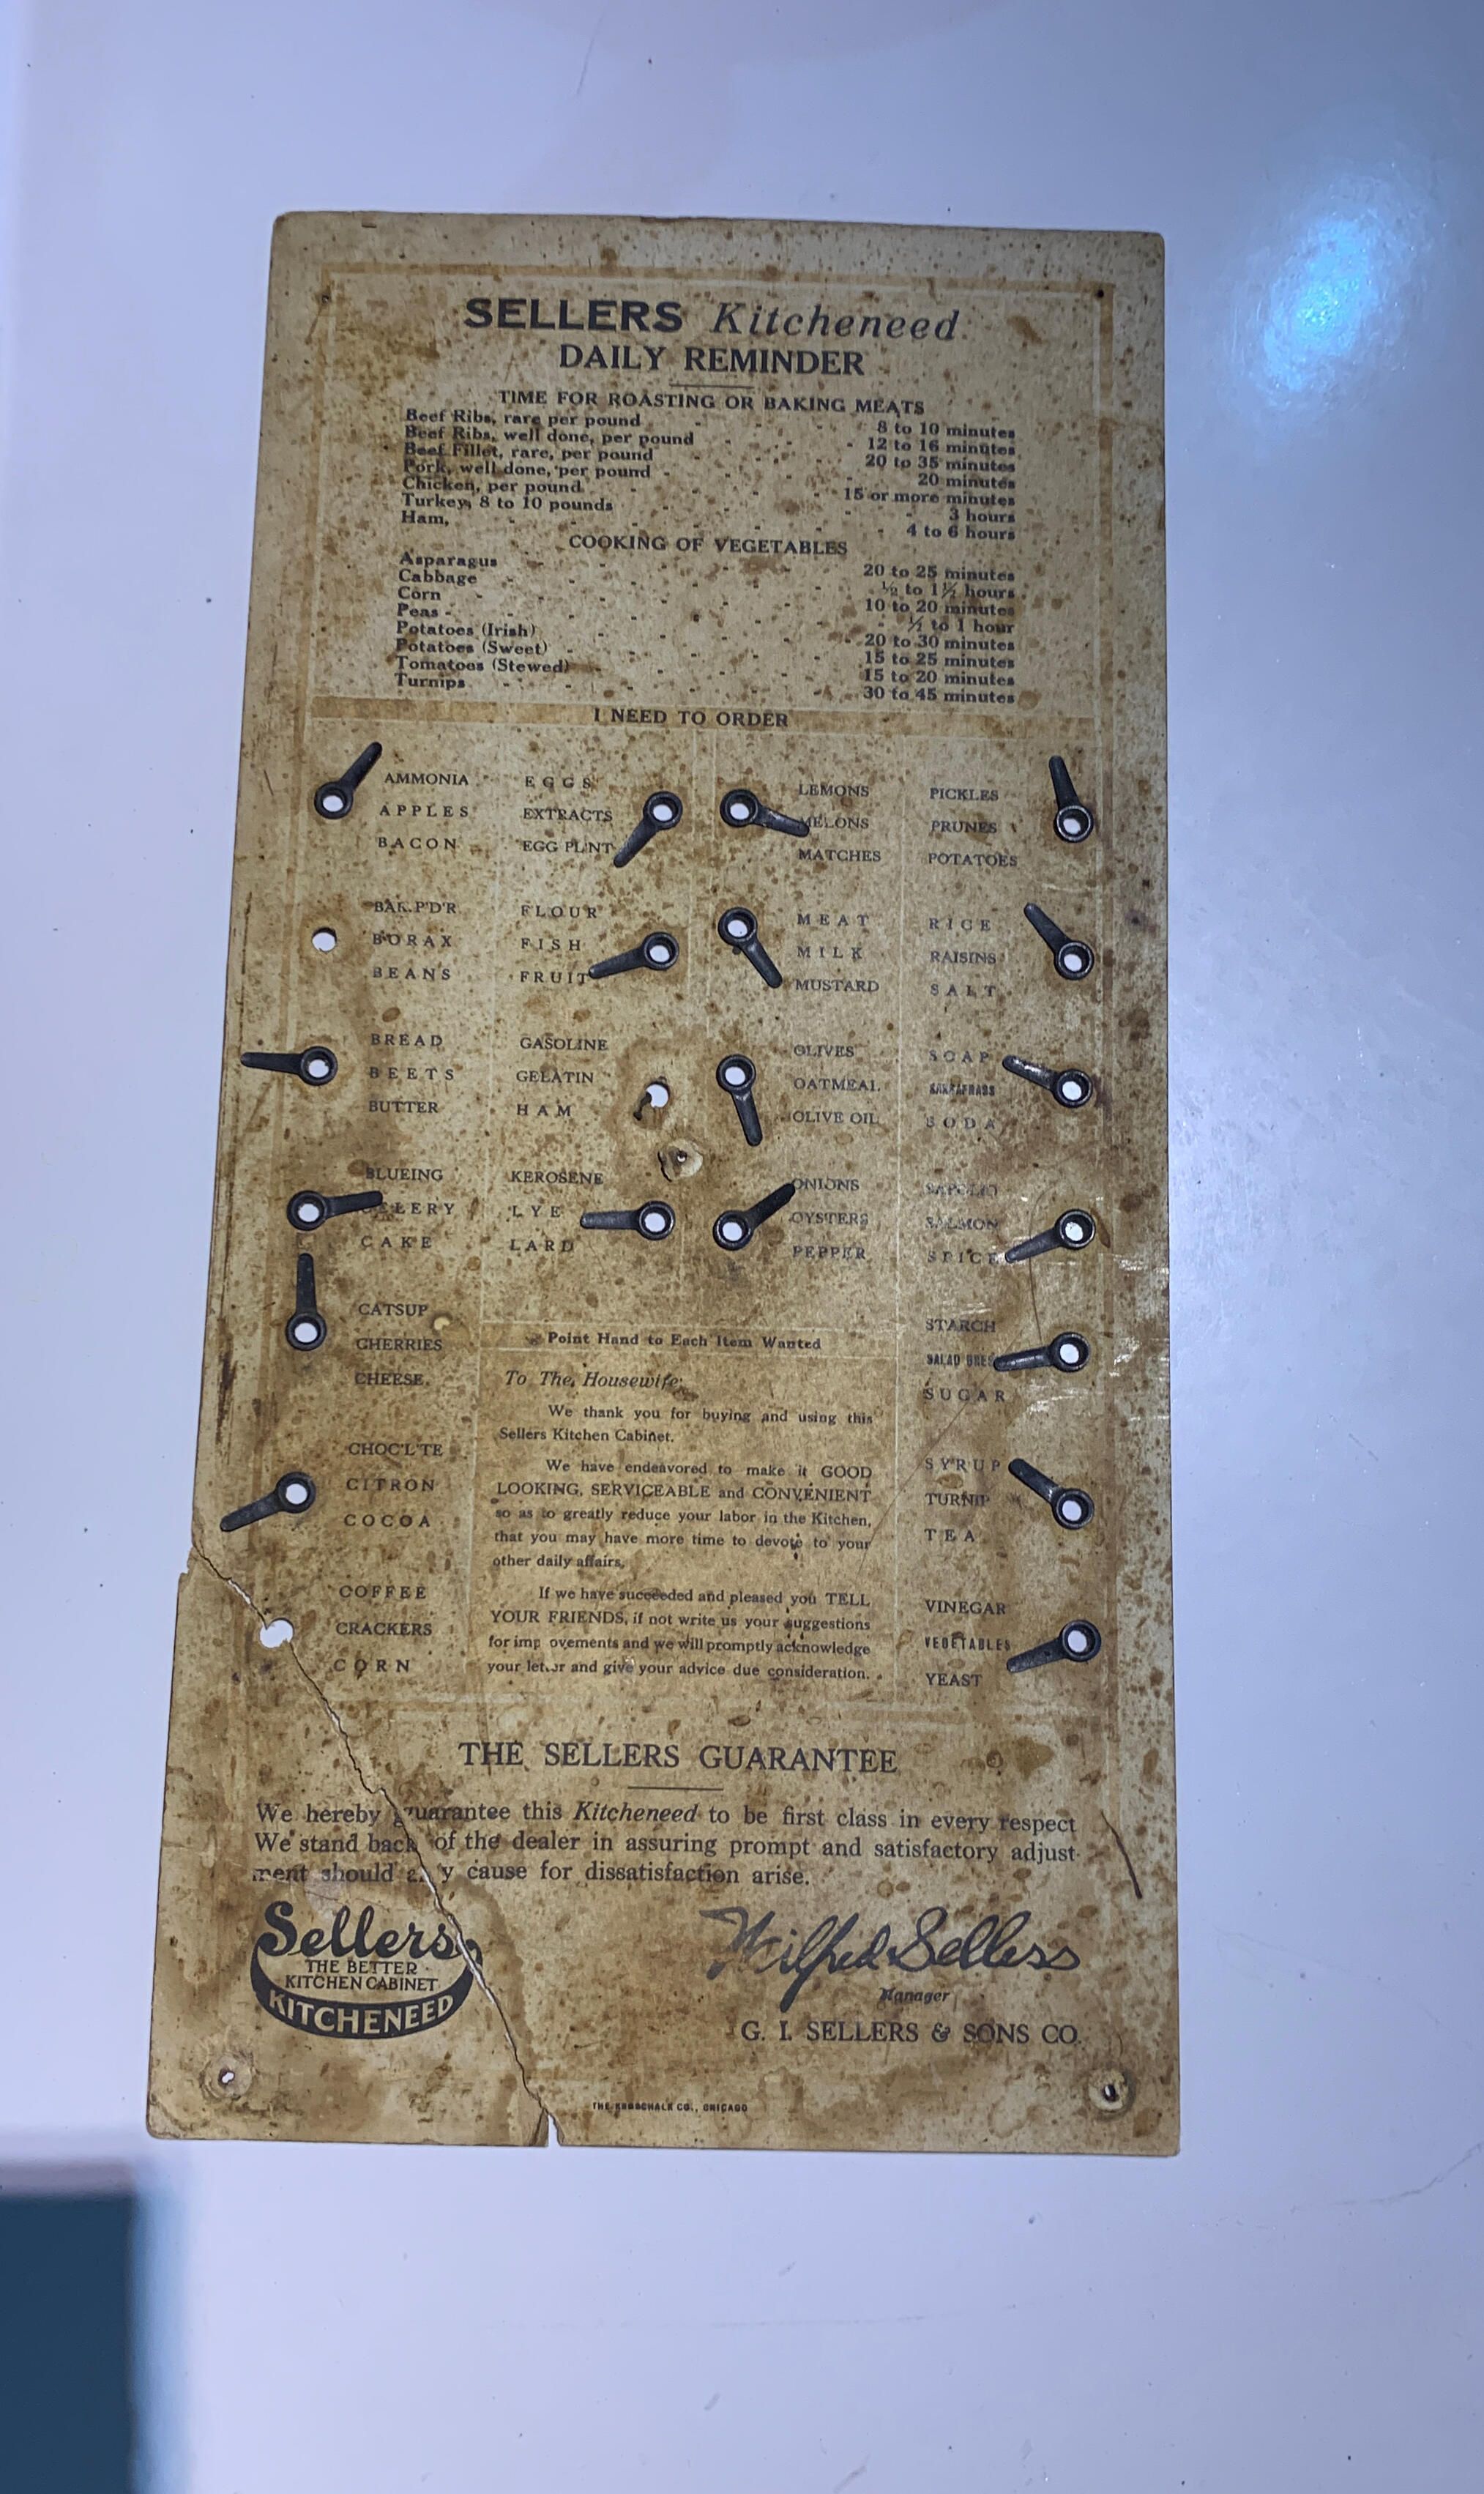 SELLERS Kitcheneed
DAILY REMINDER
TIME FOR ROASTING OR BAKING MEATS
Beef Ribs, rare per pound - - - 8 to 10 minutes
Beef Ribs, well done, per pound - - - 12 to 16 minutes
Beef Fillet, rare, per pound - - - 20 to 35 minutes
Pork, well done, per pound - - - 20 minutes
Chicken, per pound - - - 15 or more minutes
Turkey, 8 to 10 pounds - - - 3 hours
Ham, - - - 4 to 6 hours
COOKING OF VEGETABLES
Asparagus - - - 20 to 25 minutes
Cabbage - - - ½ to 1½ hours
Corn - - - 10 to 20 minutes
Peas - - - ½ to 1 hour
Potatoes (Irish) - - - 20 to 30 minutes
Potatoes (Sweet) - - - 15 to 25 minutes
Tomatoes (Stewed) - - - 15 to 20 minutes
Turnips - - - 30 to 45 minutes
I NEED TO ORDER
AMMONIA
APPLES
BACON
BAK.P'D'R
BORAX
BEANS
BREAD
BEETS
BUTTER
BLUEING
CELERY
CAKE
CATSUP
CHERRIES
CHEESE
CHOC'L'TE
CITRON
COCOA
COFFEE
CRACKERS
CORN
EGGS
EXTRACTS
EGG PL'NT
FLOUR
FISH
FRUIT
GASOLINE
GELATIN
HAM
KEROSENE
LYE
LARD
LEMONS
MELONS
MATCHES
MEAT
MILK
MUSTARD
OLIVES
OATMEAL
OLIVE OIL
ONIONS
OYSTERS
PEPPER
PICKLES
PRUNES
POTATOES
RICE
RAISINS
SALT
SOAP
SODA
SAPOLIO
SALMON
SPICE
STARCH
SALAD DRES
SUGAR
SYRUP
TURNIP
TEA
VINEGAR
VEGETABLES
YEAST
Point Hand to Each Item Wanted
To The Housewife:
We thank you for buying and using this
Sellers Kitchen Cabinet.
We have endeavored to make it GOOD
LOOKING, SERVICEABLE and CONVENIENT
so as to greatly reduce your labor in the Kitchen,
that you may have more time to devote to your
other daily affairs.
If we have succeeded and pleased you TELL
YOUR FRIENDS, if not write us your suggestions
for improvements and we will promptly acknowledge
your letter and give your advice due consideration.
THE SELLERS GUARANTEE
We hereby guarantee this Kitcheneed to be first class in every respect
We stand back of the dealer in assuring prompt and satisfactory adjust-
ment should any cause for dissatisfaction arise.
Sellers
THE BETTER
KITCHEN CABINET
KITCHENEED
Wilfred Sellers
Manager
G. I. SELLERS & SONS CO.
CO., CHICAGO